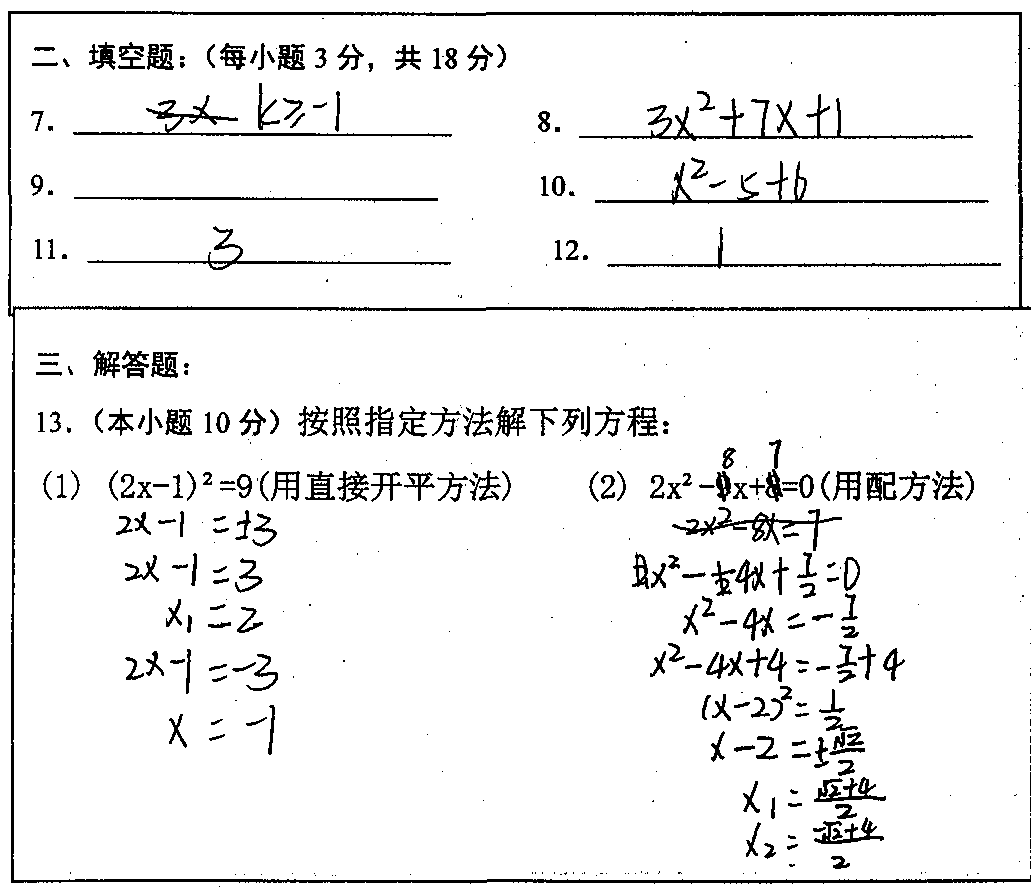 二、填空题：（每小题 3 分，共 18 分）
7. 3x k≥-1
8. 3x²+7x+1
9.
10. x²-5+6
11. 3
12. 1
三、解答题：
13.（本小题 10 分）按照指定方法解下列方程：
(1) (2x-1)²=9(用直接开平方法)
2x-1=±3
2x-1=3
x₁=2
2x-1=-3
x=-1
(2) 2x²-8x+7=0(用配方法)
2x²-8x=7
x²-4x+7/2=0
x²-4x=-7/2
x²-4x+4=-7/2+4
(x-2)²=1/2
x-2=±√2/2
x₁=(√2+4)/2
x₂=(-√2+4)/2